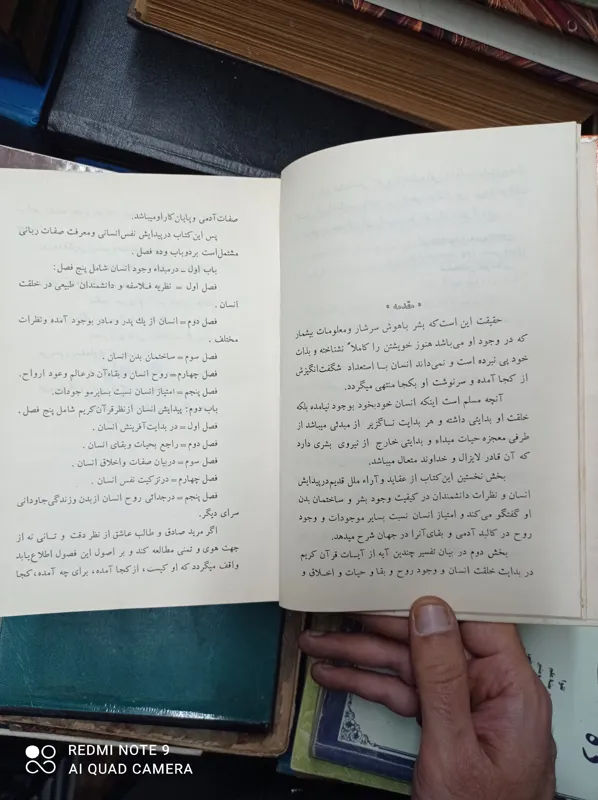 « مقدمه »
حقیقت این است که بشر باهوش سرشار و معلومات بیشمار
که در وجود او می‌باشد هنوز خویشتن را کاملاً نشناخته و بذات
خود پی نبرده است و نمی‌داند انسان با استعداد شگفت‌انگیزش
از کجا آمده و سرنوشت او بکجا منتهی میگردد.
آنچه مسلم است اینکه انسان خودبخود بوجود نیامده بلکه
خلقت او بدایتی داشته و هر بدایت ناگزیر از مبدئی میباشد از
طرفی معجزه حیات مبداء و بدایتی خارج از نیروی بشری دارد
که آن قادر لایزال و خداوند متعال میباشد.
بخش نخستین این کتاب از عقاید و آراء ملل قدیم در پیدایش
انسان و نظرات دانشمندان در کیفیت وجود بشر و ساختمان بدن
او گفتگو می‌کند و امتیاز انسان نسبت بسایر موجودات و وجود
روح در کالبد آدمی و بقای آنرا در جهان شرح میدهد.
بخش دوم در بیان تفسیر چندین آیه از آیات قرآن کریم
در بدایت خلقت انسان و وجود روح و بقا و حیات و اخلاق و
صفات آدمی و پایان کار او میباشد.
پس این کتاب در پیدایش نفس انسانی و معرفت صفات ربانی
مشتمل است بر دو باب و ده فصل.
باب اول ـ در مبداء وجود انسان شامل پنج فصل:
فصل اول = نظریه فلاسفه و دانشمندان طبیعی در خلقت
انسان .
فصل دوم = انسان از یك پدر و مادر بوجود آمده و نظرات
مختلف .
فصل سوم = ساختمان بدن انسان .
فصل چهارم = روح انسان و بقاء آن در عالم وعود ارواح.
فصل پنجم = امتیاز انسان نسبت بسایر موجودات.
باب دوم: پیدایش انسان از نظر قرآن کریم شامل پنج فصل.
فصل اول = در بدایت آفرینش انسان .
فصل دوم = راجع بحیات و بقای انسان .
فصل سوم = در بیان صفات و اخلاق انسان .
فصل چهارم = در تزکیت نفس انسان .
فصل پنجم = در جدائی روح انسان از بدن و زندگی جاودانی
سرای دیگر.
اگر مرید صادق و طالب عاشق از نظر دقت و تانی نه از
جهت هوی و تمنی مطالعه کند و بر اصول این فصول اطلاع یابد
واقف میگردد که او کیست، از کجا آمده، برای چه آمده، کجا
REDMI NOTE 9
AI QUAD CAMERA